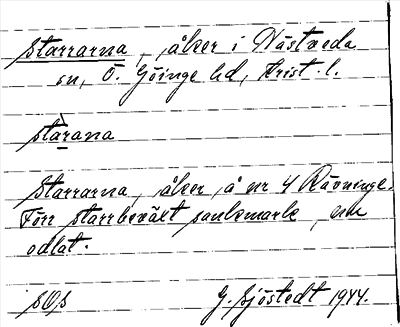 Starrarna, åker i Nästveda
sn, Ö. Göinge hd, Krist. l.
stàrana
Starrarna, åker, å nr 4 Rävninge.
Förr starrbeväxt sankmark, nu
odlat.
sOs G. Sjöstedt 1944.